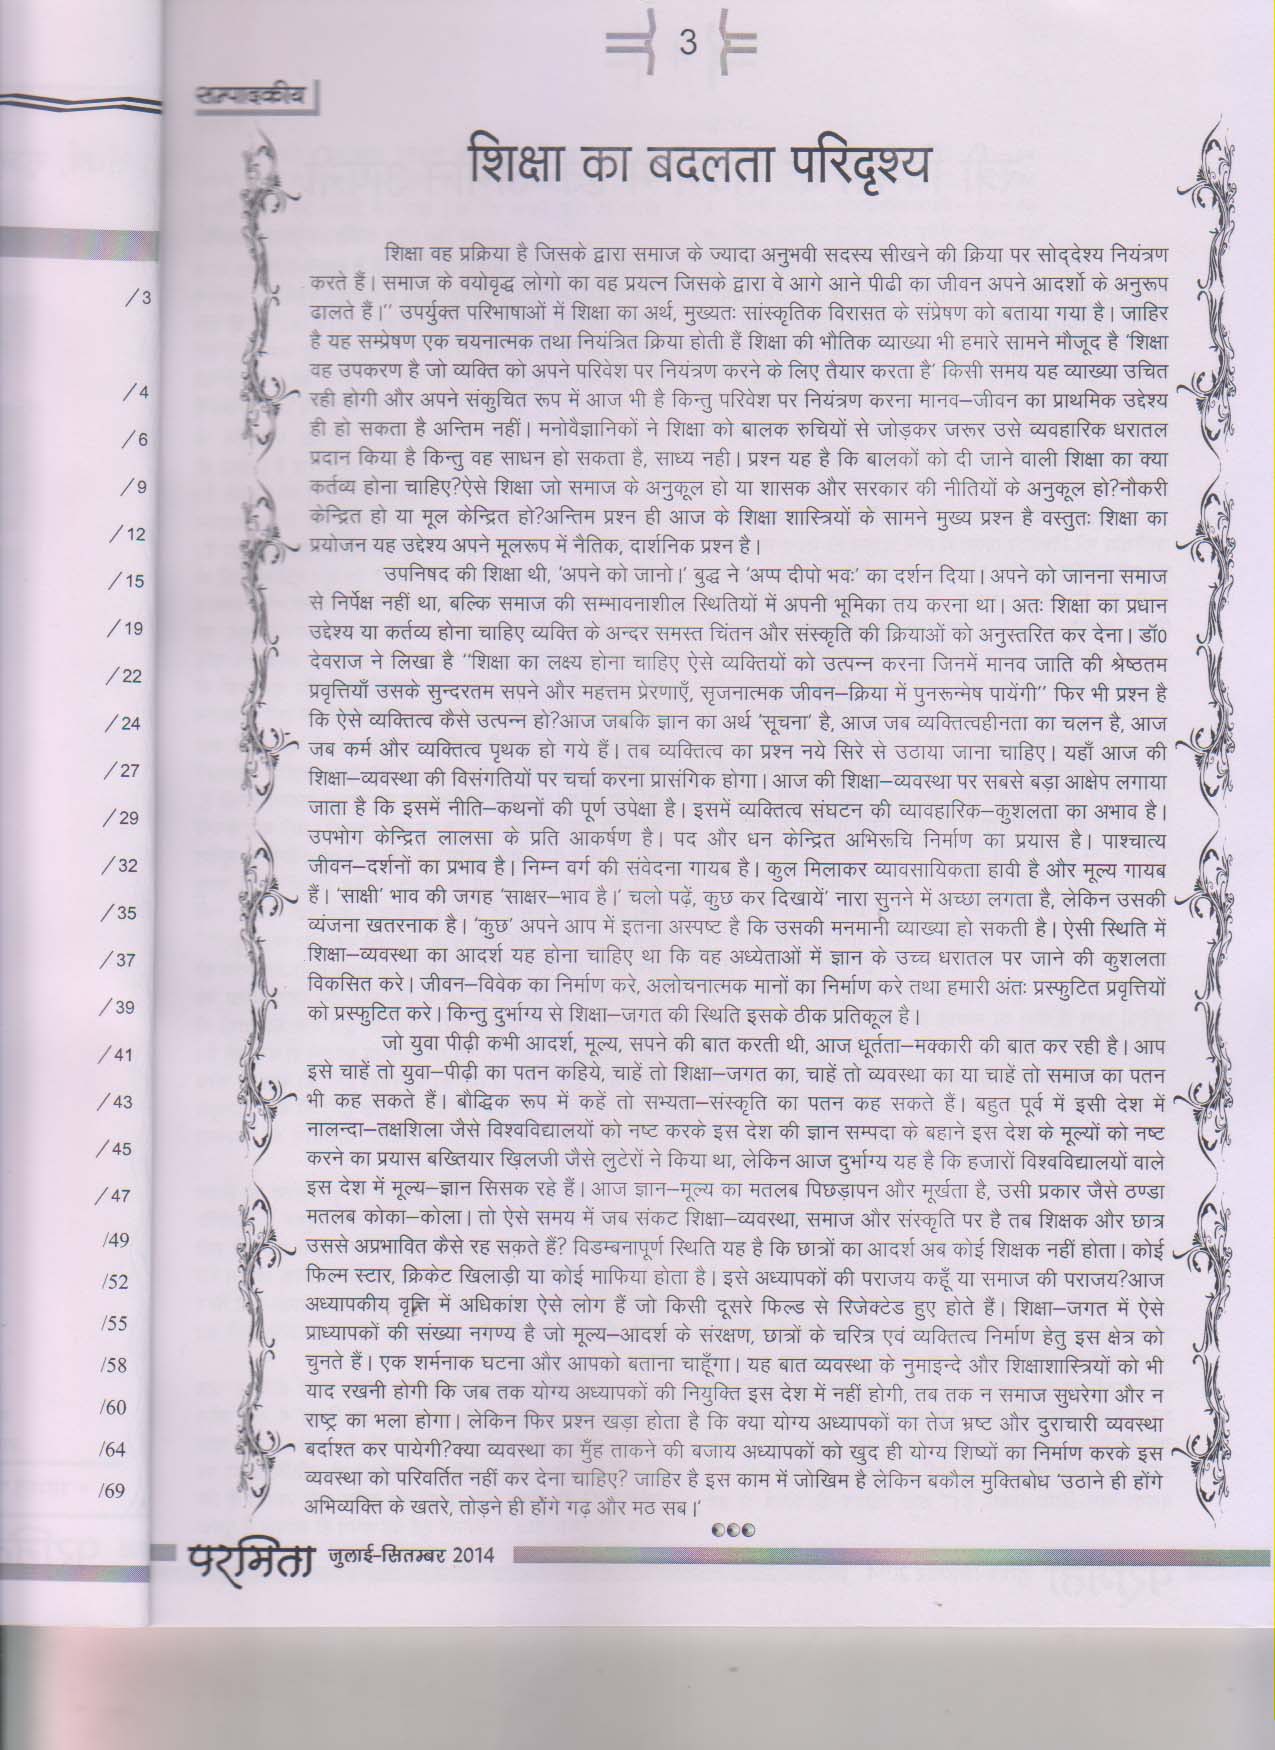 3
सम्पादकीय
शिक्षा का बदलता परिदृश्य
शिक्षा वह प्रक्रिया है जिसके द्वारा समाज के ज्यादा अनुभवी सदस्य सीखने की क्रिया पर सोद्देश्य नियंत्रण
करते हैं। समाज के वयोवृद्ध लोगो का वह प्रयत्न जिसके द्वारा वे आगे आने पीढी का जीवन अपने आदर्शो के अनुरूप
ढालते हैं।'' उपर्युक्त परिभाषाओं में शिक्षा का अर्थ, मुख्यतः सांस्कृतिक विरासत के संप्रेषण को बताया गया है। जाहिर
है यह सम्प्रेषण एक चयनात्मक तथा नियंत्रित क्रिया होती हैं शिक्षा की भौतिक व्याख्या भी हमारे सामने मौजूद है 'शिक्षा
वह उपकरण है जो व्यक्ति को अपने परिवेश पर नियंत्रण करने के लिए तैयार करता है' किसी समय यह व्याख्या उचित
रही होगी और अपने संकुचित रूप में आज भी है किन्तु परिवेश पर नियंत्रण करना मानव–जीवन का प्राथमिक उद्देश्य
ही हो सकता है अन्तिम नहीं। मनोवैज्ञानिकों ने शिक्षा को बालक रुचियों से जोड़कर जरूर उसे व्यवहारिक धरातल
प्रदान किया है किन्तु वह साधन हो सकता है, साध्य नही। प्रश्न यह है कि बालकों को दी जाने वाली शिक्षा का क्या
कर्तव्य होना चाहिए?ऐसे शिक्षा जो समाज के अनुकूल हो या शासक और सरकार की नीतियों के अनुकूल हो?नौकरी
केन्द्रित हो या मूल केन्द्रित हो?अन्तिम प्रश्न ही आज के शिक्षा शास्त्रियों के सामने मुख्य प्रश्न है वस्तुतः शिक्षा का
प्रयोजन यह उद्देश्य अपने मूलरूप में नैतिक, दार्शनिक प्रश्न है।
उपनिषद की शिक्षा थी, 'अपने को जानो।' बुद्ध ने 'अप्प दीपो भवः' का दर्शन दिया। अपने को जानना समाज
से निर्पेक्ष नहीं था, बल्कि समाज की सम्भावनाशील स्थितियों में अपनी भूमिका तय करना था। अतः शिक्षा का प्रधान
उद्देश्य या कर्तव्य होना चाहिए व्यक्ति के अन्दर समस्त चिंतन और संस्कृति की क्रियाओं को अनुस्तरित कर देना। डॉ०
देवराज ने लिखा है ''शिक्षा का लक्ष्य होना चाहिए ऐसे व्यक्तियों को उत्पन्न करना जिनमें मानव जाति की श्रेष्ठतम
प्रवृत्तियाँ उसके सुन्दरतम सपने और महत्तम प्रेरणाएँ, सृजनात्मक जीवन–क्रिया में पुनरून्मेष पायेंगी'' फिर भी प्रश्न है
कि ऐसे व्यक्तित्व कैसे उत्पन्न हो?आज जबकि ज्ञान का अर्थ 'सूचना' है, आज जब व्यक्तित्वहीनता का चलन है, आज
जब कर्म और व्यक्तित्व पृथक हो गये हैं। तब व्यक्तित्व का प्रश्न नये सिरे से उठाया जाना चाहिए। यहाँ आज की
शिक्षा–व्यवस्था की विसंगतियों पर चर्चा करना प्रासंगिक होगा। आज की शिक्षा–व्यवस्था पर सबसे बड़ा आक्षेप लगाया
जाता है कि इसमें नीति–कथनों की पूर्ण उपेक्षा है। इसमें व्यक्तित्व संघटन की व्यावहारिक–कुशलता का अभाव है।
उपभोग केन्द्रित लालसा के प्रति आकर्षण है। पद और धन केन्द्रित अभिरूचि निर्माण का प्रयास है। पाश्चात्य
जीवन–दर्शनों का प्रभाव है। निम्न वर्ग की संवेदना गायब है। कुल मिलाकर व्यावसायिकता हावी है और मूल्य गायब
हैं। 'साक्षी' भाव की जगह 'साक्षर–भाव है।' चलो पढ़ें, कुछ कर दिखायें' नारा सुनने में अच्छा लगता है, लेकिन उसकी
व्यंजना खतरनाक है। 'कुछ' अपने आप में इतना अस्पष्ट है कि उसकी मनमानी व्याख्या हो सकती है। ऐसी स्थिति में
शिक्षा–व्यवस्था का आदर्श यह होना चाहिए था कि वह अध्येताओं में ज्ञान के उच्च धरातल पर जाने की कुशलता
विकसित करे। जीवन–विवेक का निर्माण करे, अलोचनात्मक मानों का निर्माण करे तथा हमारी अंतः प्रस्फुटित प्रवृत्तियों
को प्रस्फुटित करे। किन्तु दुर्भाग्य से शिक्षा–जगत की स्थिति इसके ठीक प्रतिकूल है।
जो युवा पीढ़ी कभी आदर्श, मूल्य, सपने की बात करती थी, आज धूर्तता–मक्कारी की बात कर रही है। आप
इसे चाहें तो युवा–पीढ़ी का पतन कहिये, चाहें तो शिक्षा–जगत का, चाहें तो व्यवस्था का या चाहें तो समाज का पतन
भी कह सकते हैं। बौद्धिक रूप में कहें तो सभ्यता–संस्कृति का पतन कह सकते हैं। बहुत पूर्व में इसी देश में
नालन्दा–तक्षशिला जैसे विश्वविद्यालयों को नष्ट करके इस देश की ज्ञान सम्पदा के बहाने इस देश के मूल्यों को नष्ट
करने का प्रयास बख्तियार ख़िलजी जैसे लुटेरों ने किया था, लेकिन आज दुर्भाग्य यह है कि हजारों विश्वविद्यालयों वाले
इस देश में मूल्य–ज्ञान सिसक रहे हैं। आज ज्ञान–मूल्य का मतलब पिछड़ापन और मूर्खता है, उसी प्रकार जैसे ठण्डा
मतलब कोका–कोला। तो ऐसे समय में जब संकट शिक्षा–व्यवस्था, समाज और संस्कृति पर है तब शिक्षक और छात्र
उससे अप्रभावित कैसे रह सकते हैं? विडम्बनापूर्ण स्थिति यह है कि छात्रों का आदर्श अब कोई शिक्षक नहीं होता। कोई
फिल्म स्टार, क्रिकेट खिलाड़ी या कोई माफिया होता है। इसे अध्यापकों की पराजय कहूँ या समाज की पराजय?आज
अध्यापकीय वृत्ति में अधिकांश ऐसे लोग हैं जो किसी दूसरे फिल्ड से रिजेक्टेड हुए होते हैं। शिक्षा–जगत में ऐसे
प्राध्यापकों की संख्या नगण्य है जो मूल्य–आदर्श के संरक्षण, छात्रों के चरित्र एवं व्यक्तित्व निर्माण हेतु इस क्षेत्र को
चुनते हैं। एक शर्मनाक घटना और आपको बताना चाहूँगा। यह बात व्यवस्था के नुमाइन्दे और शिक्षाशास्त्रियों को भी
याद रखनी होगी कि जब तक योग्य अध्यापकों की नियुक्ति इस देश में नहीं होगी, तब तक न समाज सुधरेगा और न
राष्ट्र का भला होगा। लेकिन फिर प्रश्न खड़ा होता है कि क्या योग्य अध्यापकों का तेज भ्रष्ट और दुराचारी व्यवस्था
बर्दाश्त कर पायेगी?क्या व्यवस्था का मुँह ताकने की बजाय अध्यापकों को खुद ही योग्य शिष्यों का निर्माण करके इस
व्यवस्था को परिवर्तित नहीं कर देना चाहिए? जाहिर है इस काम में जोखिम है लेकिन बकौल मुक्तिबोध 'उठाने ही होंगे
अभिव्यक्ति के खतरे, तोड़ने ही होंगे गढ़ और मठ सब।'
परमिता जुलाई-सितम्बर 2014
/ 3
/ 4
/ 6
/ 9
/ 12
/ 15
/ 19
/ 22
/ 24
/ 27
/ 29
/ 32
/ 35
/ 37
/ 39
/ 41
/ 43
/ 45
/ 47
/49
/52
/55
/58
/60
/64
/69